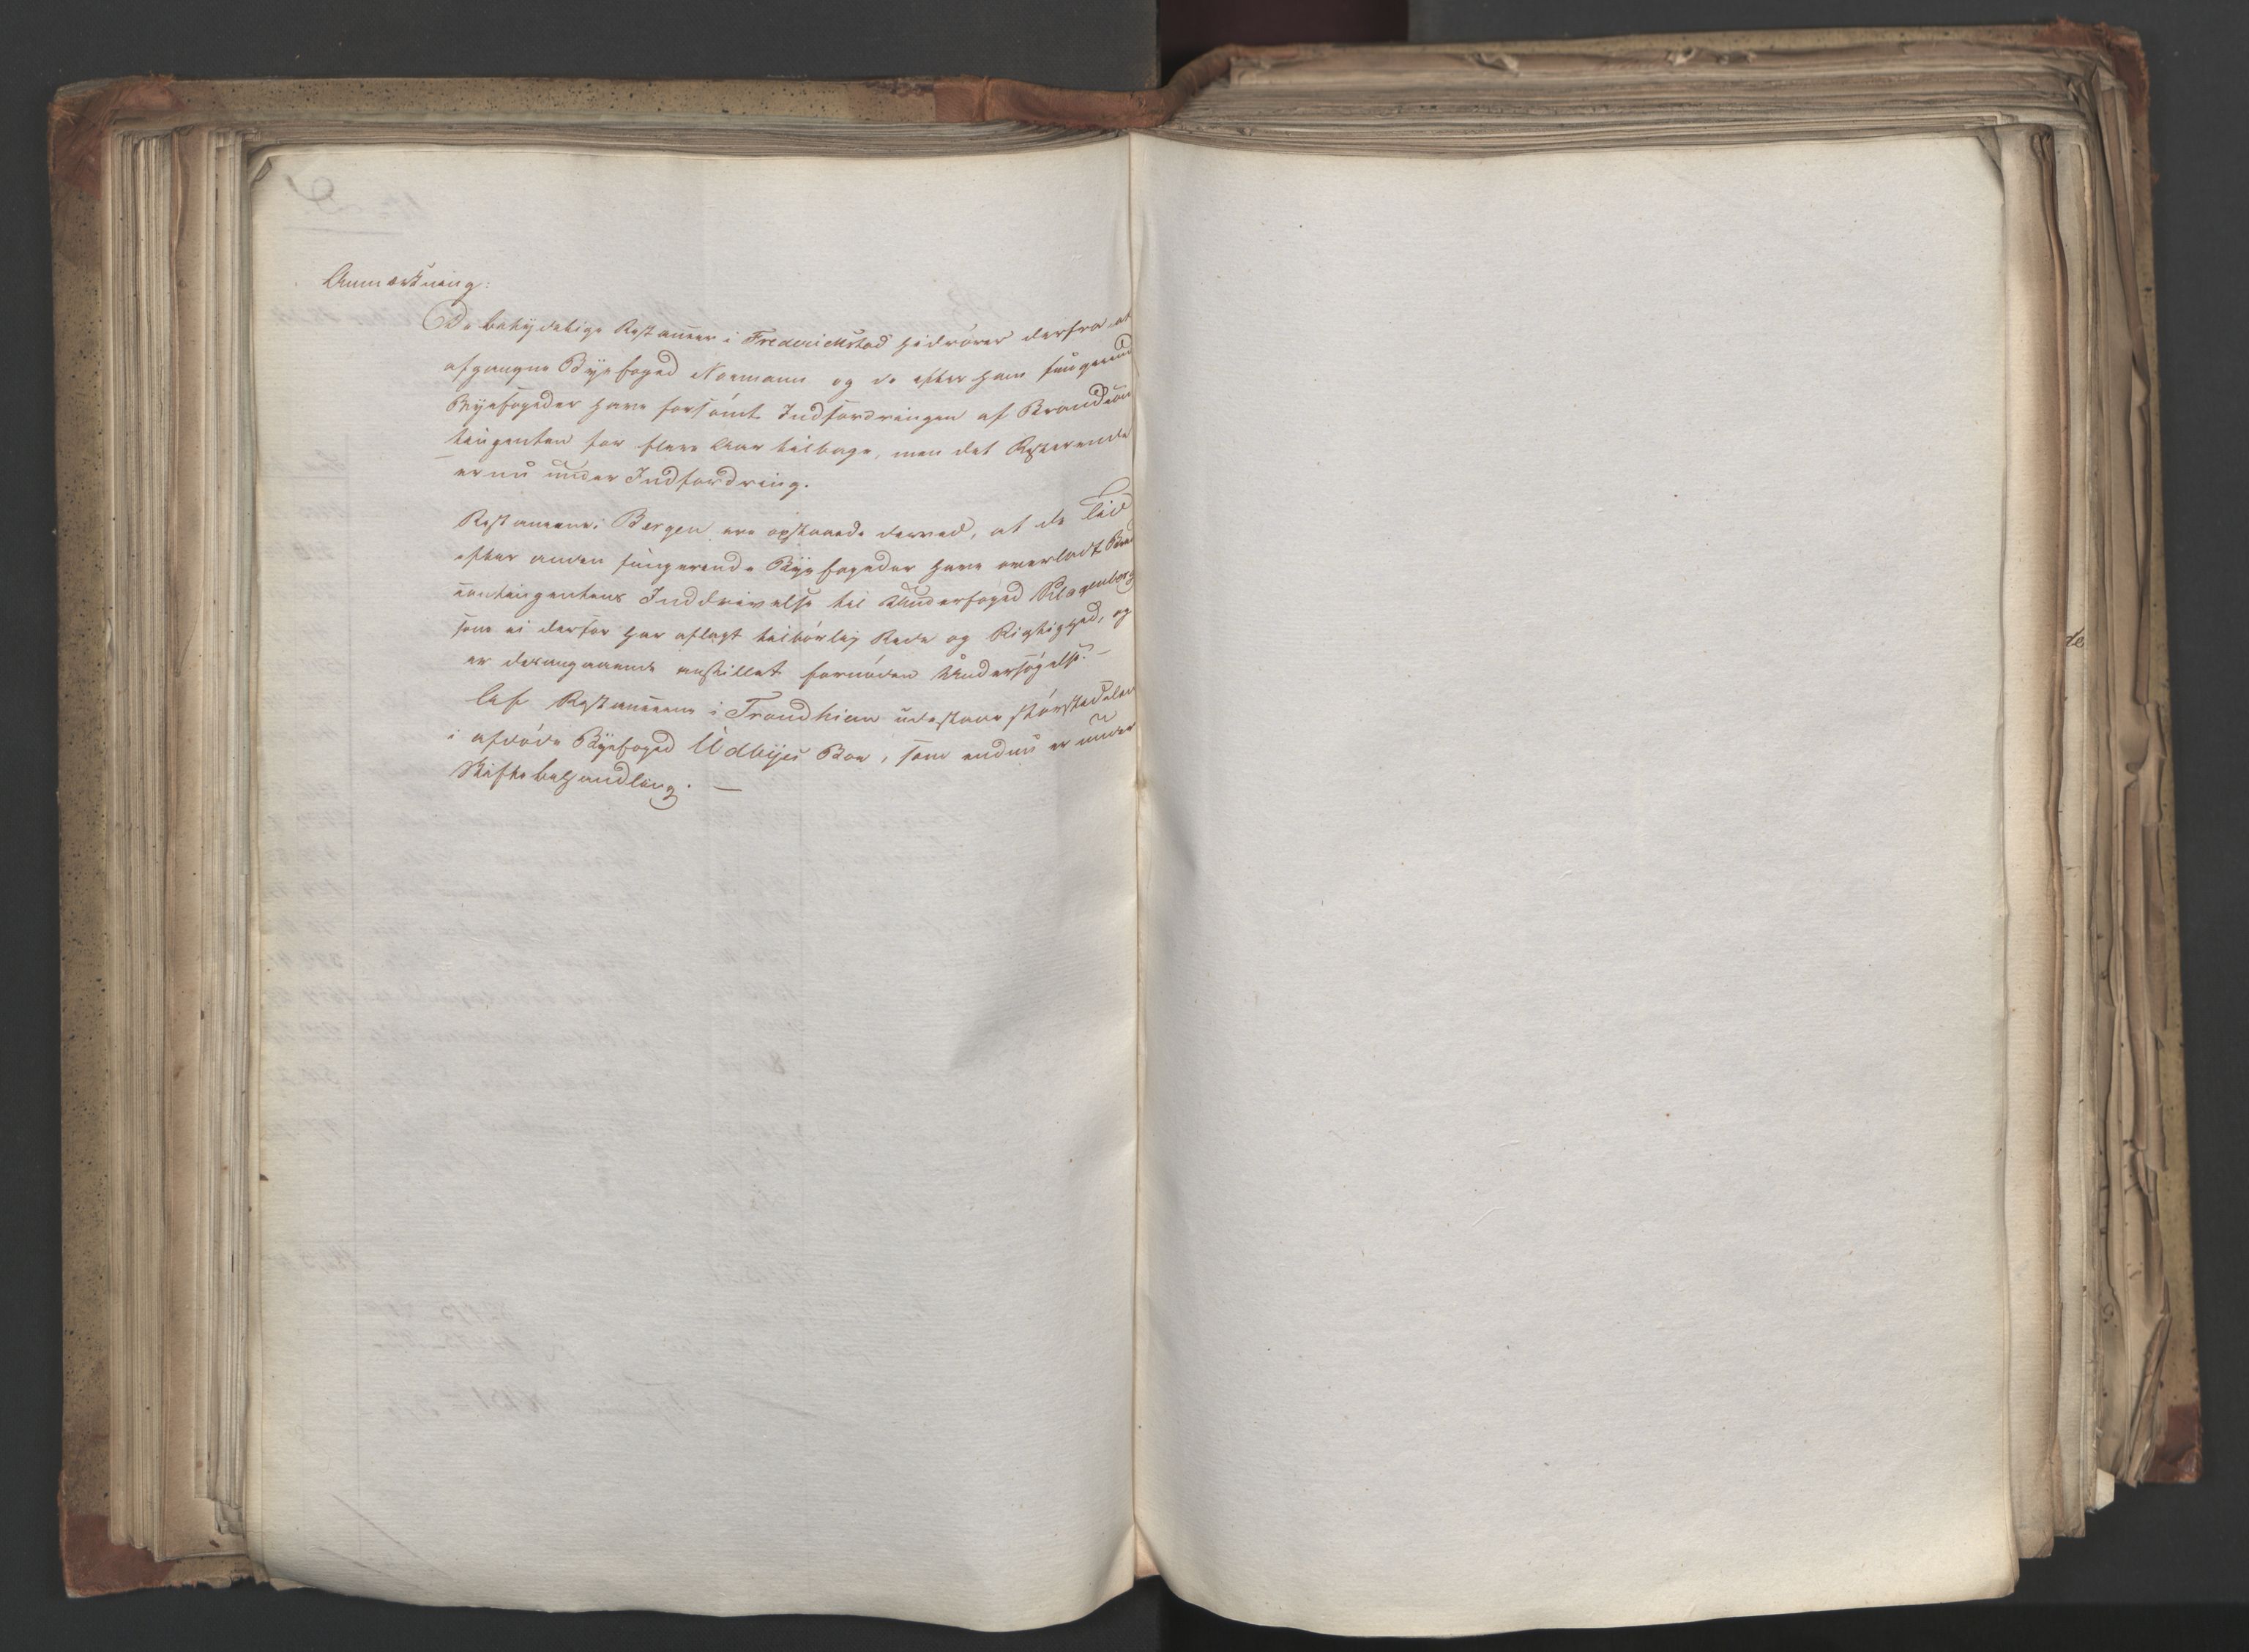 Anmærkning:
De betydelige Restancer i Frederickstad hidrører derfra, at
afgangne Byefoged Normann og de efter ham fungerende
Byefogeder have forsømt Indfordringen af Brandcon
tingenten for flere Aar tilbage, men det Resterende
er nu under Indfordring.
Restancerne i Bergen ere opstaaede derved, at de Tid
efter anden fungerende Byefogeder have overladt Brand
contingentens Inddrivelse til Underfoged
som ei derfor har aflagt tilbørlig Rede og Rigtighed, og
er desangaaende anstillet fornöden Undersögelse. —
Af Restancerne i Trondhiem udestaae störstedelen
i afdöde Byefoged Udbyes Boe, som endnu er under
Skiftebehandling. —
de